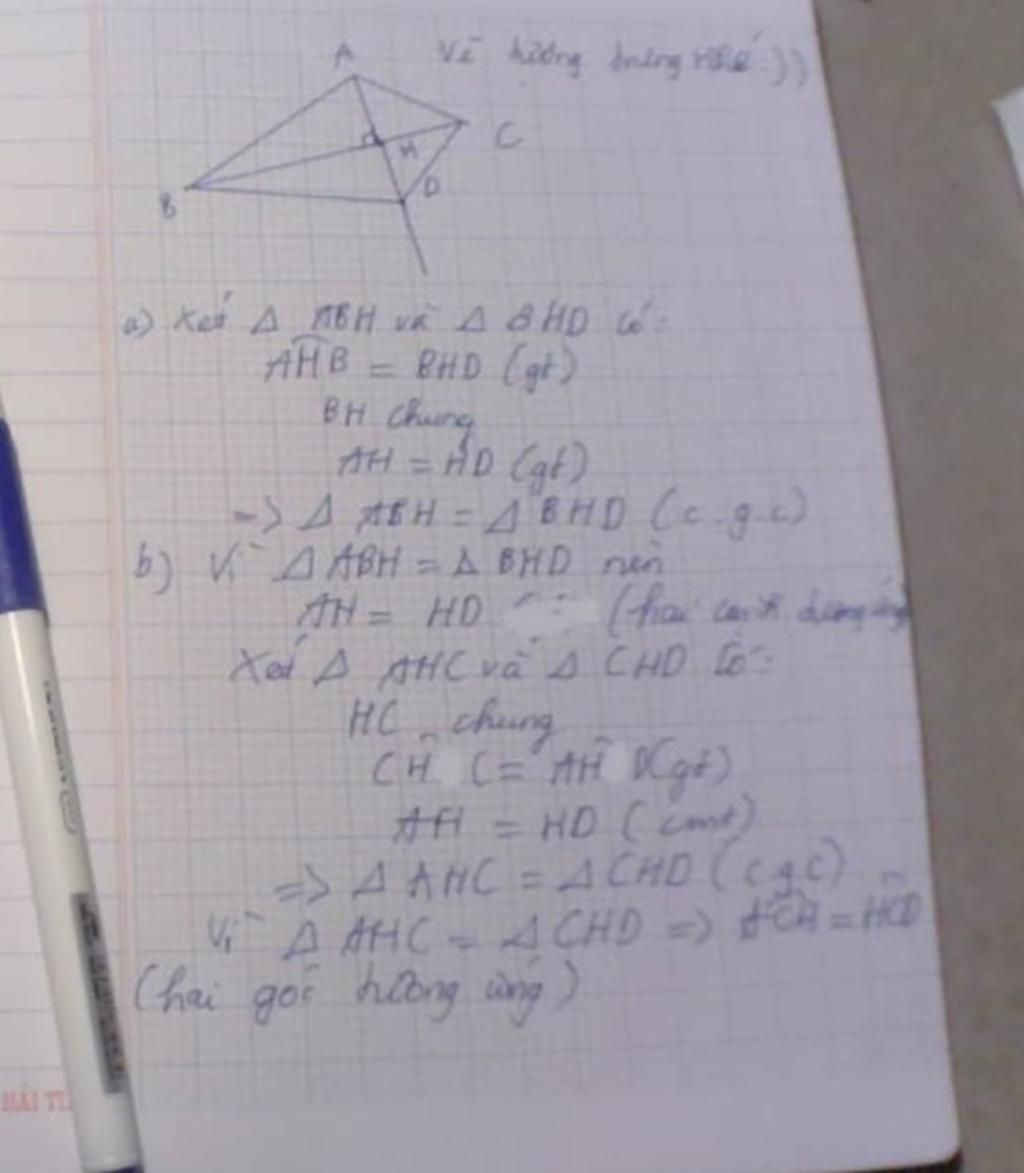 A
C
H
D
B
a) Xét Δ ABH và Δ BHD có:
AHB = BHD (gt)
BH chung
AH = HD (gt)
=> Δ ABH = Δ BHD (c.g.c)
b) Vì Δ ABH = Δ BHD nên
AH = HD (hai cạnh tương ứng)
Xét Δ AHC và Δ CHD có:
HC chung
CH C = AH D (gt)
AH = HD (cmt)
=> Δ AHC = Δ CHD (c.g.c)
Vì Δ AHC = Δ CHD => ACH = HCD
(hai góc tương ứng)
HẢI TI